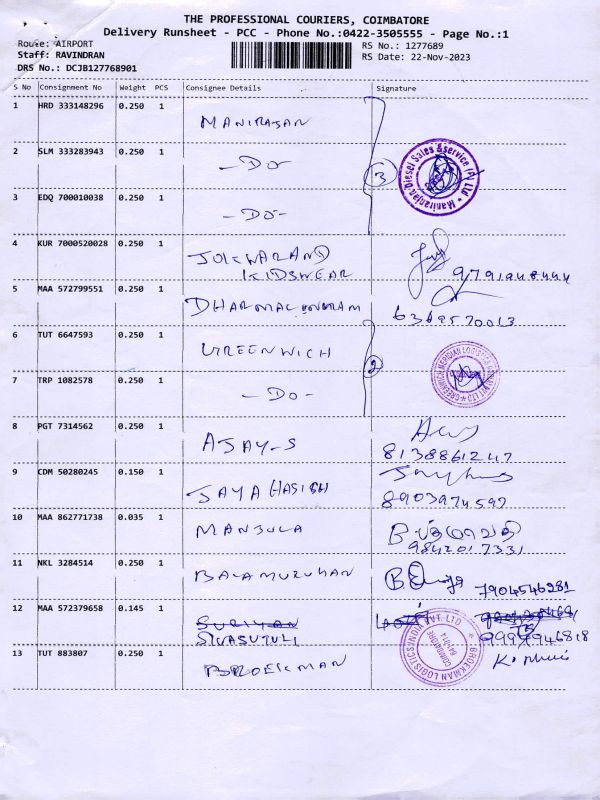 THE PROFESSIONAL COURIERS, COIMBATORE
Delivery Runsheet - PCC - Phone No.:0422-3505555 - Page No.:1
Route: AIRPORT
Staff: RAVINDRAN
DRS No.: DCJB127768901
RS No.: 1277689
RS Date: 22-Nov-2023
S No Consignment No Weight PCS Consignee Details Signature
1 HRD 333148296 0.250 1 MANIRAJAN
2 SLM 333283943 0.250 1 -DO-
3 EDQ 700010038 0.250 1 -DO-
3
Maniranjan Diesel Sales & service (P) Ltd
4 KUR 7000520028 0.250 1 JOKWARAND
KIDSWEAR
5 MAA 572799551 0.250 1 DHARMALINGRAM 6369570013
6 TUT 6647593 0.250 1 GREENWICH
7 TRP 1082578 0.250 1 -DO-
2
GREENWICH MERIDIAN LOGISTICS PVT LTD
8 PGT 7314562 0.250 1 AJAY-S
8138861247
9 CDM 50280245 0.150 1 JAYA HASISH
8903974597
10 MAA 862771738 0.035 1 MANJULA
9842017331
11 NKL 3284514 0.250 1 BALAMURUHAN 7904546281
12 MAA 572379658 0.145 1 SURIYAN
SIVASUTULI
13 TUT 883807 0.250 1 BROEKMAN
BROEKMAN LOGISTICS INDIA PVT. LTD
COIMBATORE
641014